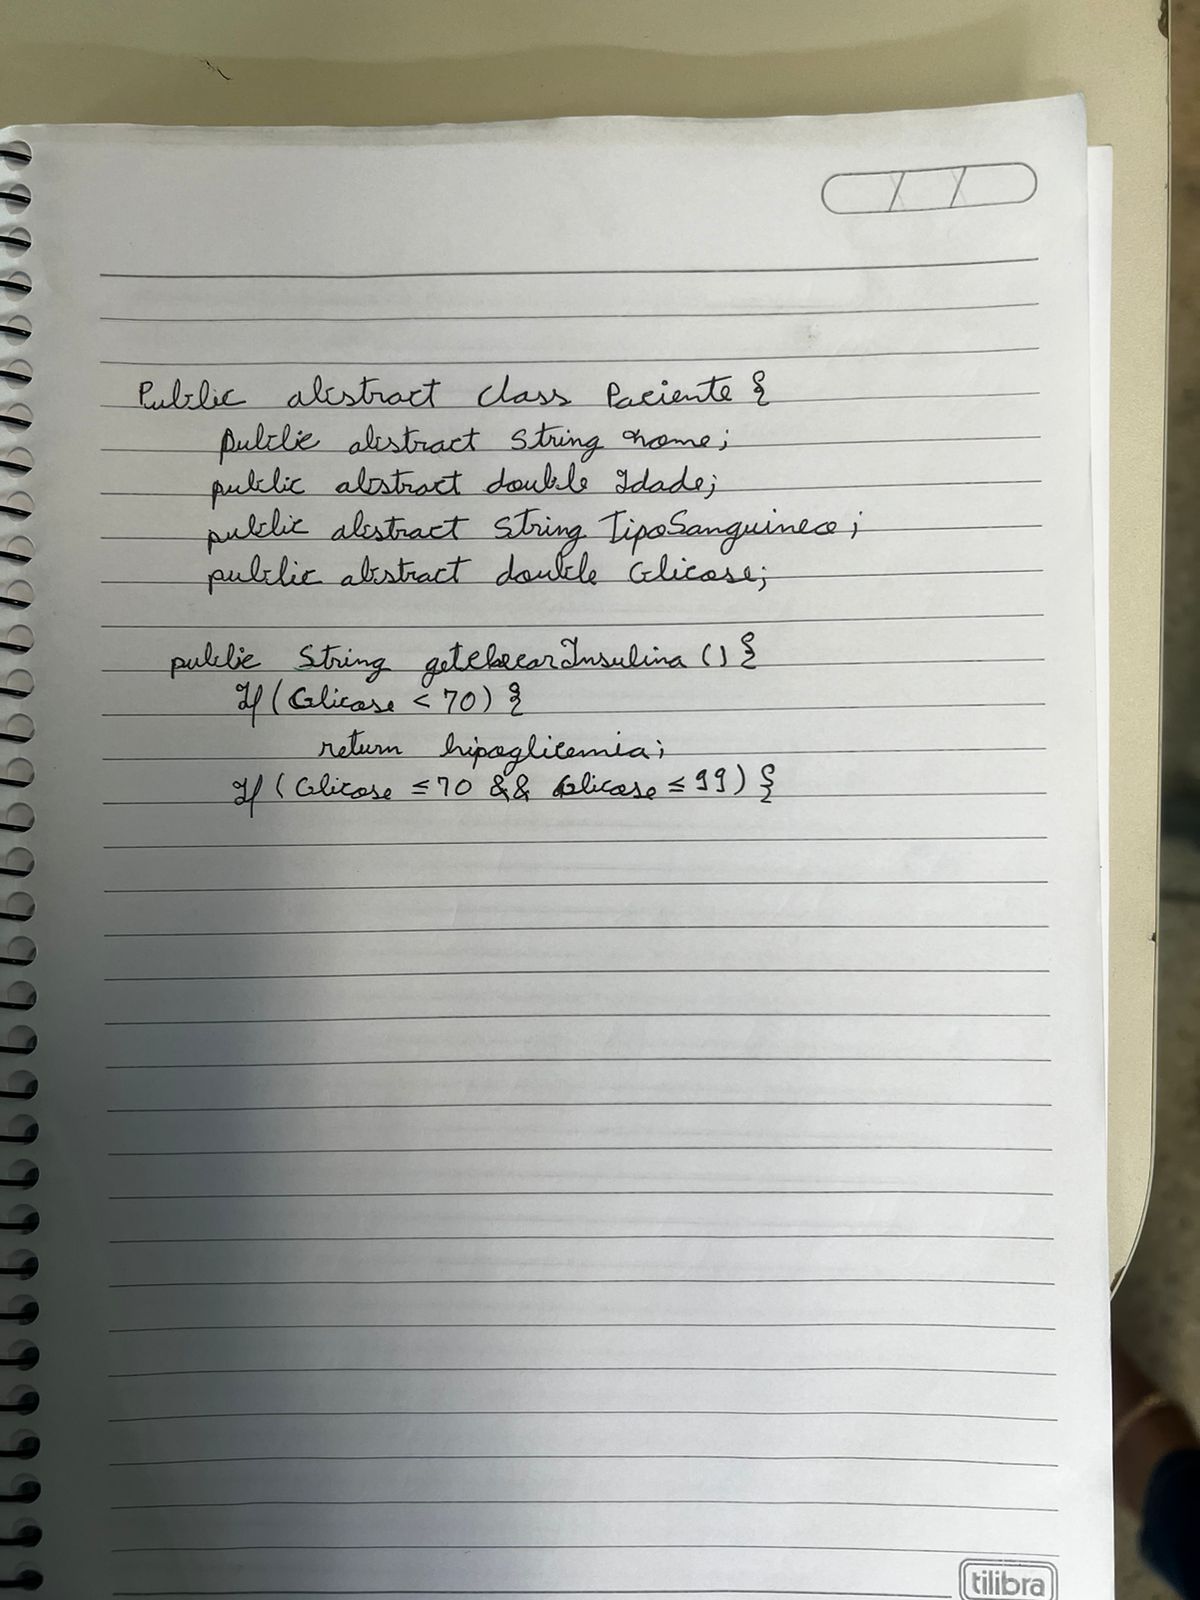 Public abstract class Paciente {
public abstract String nome;
public abstract double Idade;
public abstract String TipoSanguineo;
public abstract double Glicose;
public String getChecarInsulina () {
If (Glicose < 70) {
return hipoglicemia;
If (Glicose ≤ 70 && Glicose ≤ 99) {
tilibra